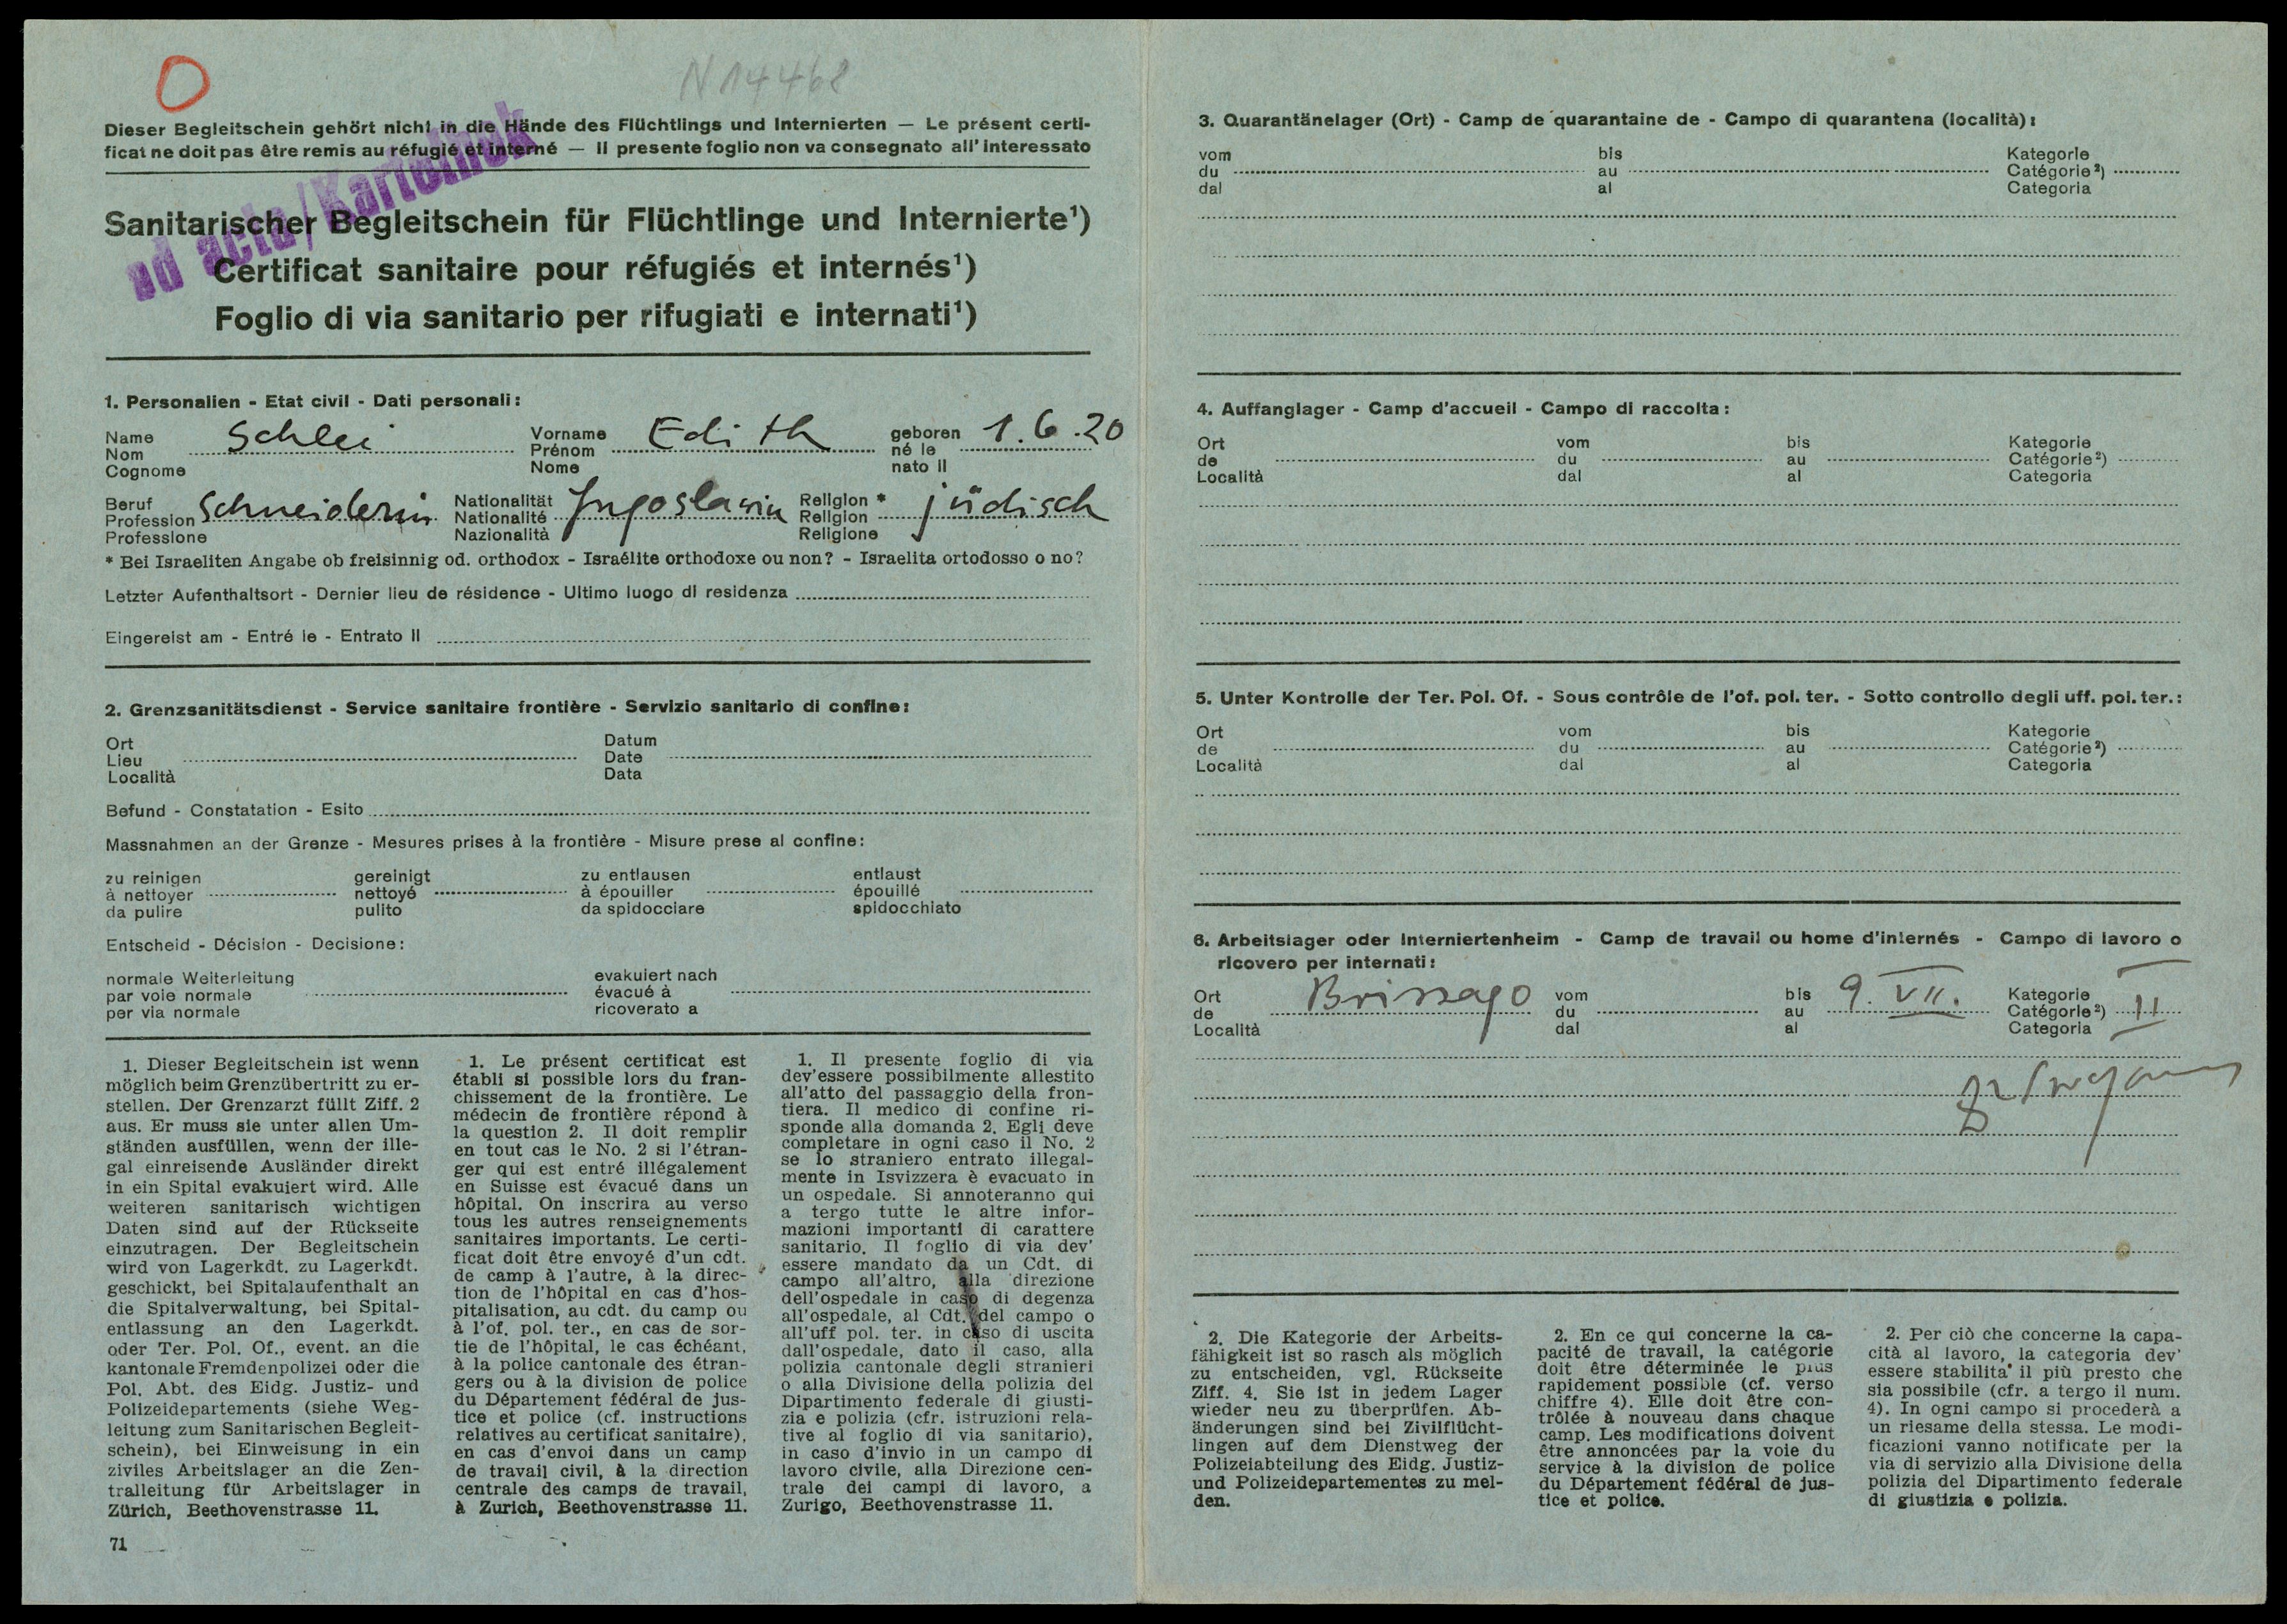 N 14468
ad acta/Kartothek
Dieser Begleitschein gehört nicht in die Hände des Flüchtlings und Internierten — Le présent certi-
ficat ne doit pas être remis au réfugié et interné — Il presente foglio non va consegnato all'interessato
Sanitarischer Begleitschein für Flüchtlinge und Internierte¹)
Certificat sanitaire pour réfugiés et internés¹)
Foglio di via sanitario per rifugiati e internati¹)
1. Personalien - Etat civil - Dati personali:
Name Schlei Vorname Edith geboren 1.6.20
Nom Prénom né le
Cognome Nome nato il
Beruf Schneiderin Nationalität Jugoslavin Religion * jüdisch
Profession Nationalité Religion
Professione Nazionalità Religione
* Bei Israeliten Angabe ob freisinnig od. orthodox - Israélite orthodoxe ou non? - Israelita ortodosso o no?
Letzter Aufenthaltsort - Dernier lieu de résidence - Ultimo luogo di residenza
Eingereist am - Entré le - Entrato il
2. Grenzsanitätsdienst - Service sanitaire frontière - Servizio sanitario di confine:
Ort Datum
Lieu Date
Località Data
Befund - Constatation - Esito
Massnahmen an der Grenze - Mesures prises à la frontière - Misure prese al confine:
zu reinigen gereinigt zu entlausen entlaust
à nettoyer nettoyé à épouiller épouillé
da pulire pulito da spidocciare spidocchiato
Entscheid - Décision - Decisione:
normale Weiterleitung evakuiert nach
par voie normale évacué à
per via normale ricoverato a
1. Dieser Begleitschein ist wenn
möglich beim Grenzübertritt zu er-
stellen. Der Grenzarzt füllt Ziff. 2
aus. Er muss sie unter allen Um-
ständen ausfüllen, wenn der ille-
gal einreisende Ausländer direkt
in ein Spital evakuiert wird. Alle
weiteren sanitarisch wichtigen
Daten sind auf der Rückseite
einzutragen. Der Begleitschein
wird von Lagerkdt. zu Lagerkdt.
geschickt, bei Spitalaufenthalt an
die Spitalverwaltung, bei Spital-
entlassung an den Lagerkdt.
oder Ter. Pol. Of., event. an die
kantonale Fremdenpolizei oder die
Pol. Abt. des Eidg. Justiz- und
Polizeidepartements (siehe Weg-
leitung zum Sanitarischen Begleit-
schein), bei Einweisung in ein
ziviles Arbeitslager an die Zen-
tralleitung für Arbeitslager in
Zürich, Beethovenstrasse 11.
1. Le présent certificat est
établi si possible lors du fran-
chissement de la frontière. Le
médecin de frontière répond à
la question 2. Il doit remplir
en tout cas le No. 2 si l'étran-
ger qui est entré illégalement
en Suisse est évacué dans un
hôpital. On inscrira au verso
tous les autres renseignements
sanitaires importants. Le certi-
ficat doit être envoyé d'un cdt.
de camp à l'autre, à la direc-
tion de l'hôpital en cas d'hos-
pitalisation, au cdt. du camp ou
à l'of. pol. ter., en cas de sor-
tie de l'hôpital, le cas échéant,
à la police cantonale des étran-
gers ou à la division de police
du Département fédéral de jus-
tice et police (cf. instructions
relatives au certificat sanitaire),
en cas d'envoi dans un camp
de travail civil, à la direction
centrale des camps de travail,
à Zurich, Beethovenstrasse 11.
1. Il presente foglio di via
dev'essere possibilmente allestito
all'atto del passaggio della fron-
tiera. Il medico di confine ri-
sponde alla domanda 2. Egli deve
completare in ogni caso il No. 2
se lo straniero entrato illegal-
mente in Isvizzera è evacuato in
un ospedale. Si annoteranno qui
a tergo tutte le altre infor-
mazioni importanti di carattere
sanitario. Il foglio di via dev'
essere mandato da un Cdt. di
campo all'altro, alla direzione
dell'ospedale in caso di degenza
all'ospedale, al Cdt. del campo o
all'uff pol. ter. in caso di uscita
dall'ospedale, dato il caso, alla
polizia cantonale degli stranieri
o alla Divisione della polizia del
Dipartimento federale di giusti-
zia e polizia (cfr. istruzioni rela-
tive al foglio di via sanitario),
in caso d'invio in un campo di
lavoro civile, alla Direzione cen-
trale dei campi di lavoro, a
Zurigo, Beethovenstrasse 11.
71
3. Quarantänelager (Ort) - Camp de quarantaine de - Campo di quarantena (località):
vom bis Kategorie
du au Catégorie²)
dal al Categoria
4. Auffanglager - Camp d'accueil - Campo di raccolta:
Ort vom bis Kategorie
de du au Catégorie²)
Località dal al Categoria
5. Unter Kontrolle der Ter. Pol. Of. - Sous contrôle de l'of. pol. ter. - Sotto controllo degli uff. pol. ter.:
Ort vom bis Kategorie
de du au Catégorie²)
Località dal al Categoria
6. Arbeitslager oder Interniertenheim - Camp de travail ou home d'internés - Campo di lavoro o
ricovero per internati:
Ort Brissago vom bis 9. VII. Kategorie II
de du au Catégorie²)
Località dal al Categoria
2. Die Kategorie der Arbeits-
fähigkeit ist so rasch als möglich
zu entscheiden, vgl. Rückseite
Ziff. 4. Sie ist in jedem Lager
wieder neu zu überprüfen. Ab-
änderungen sind bei Zivilflücht-
lingen auf dem Dienstweg der
Polizeiabteilung des Eidg. Justiz-
und Polizeidepartementes zu mel-
den.
2. En ce qui concerne la ca-
pacité de travail, la catégorie
doit être déterminée le plus
rapidement possible (cf. verso
chiffre 4). Elle doit être con-
trôlée à nouveau dans chaque
camp. Les modifications doivent
être annoncées par la voie du
service à la division de police
du Département fédéral de jus-
tice et police.
2. Per ciò che concerne la capa-
cità al lavoro, la categoria dev'
essere stabilita il più presto che
sia possibile (cfr. a tergo il num.
4). In ogni campo si procederà a
un riesame della stessa. Le modi-
ficazioni vanno notificate per la
via di servizio alla Divisione della
polizia del Dipartimento federale
di giustizia e polizia.